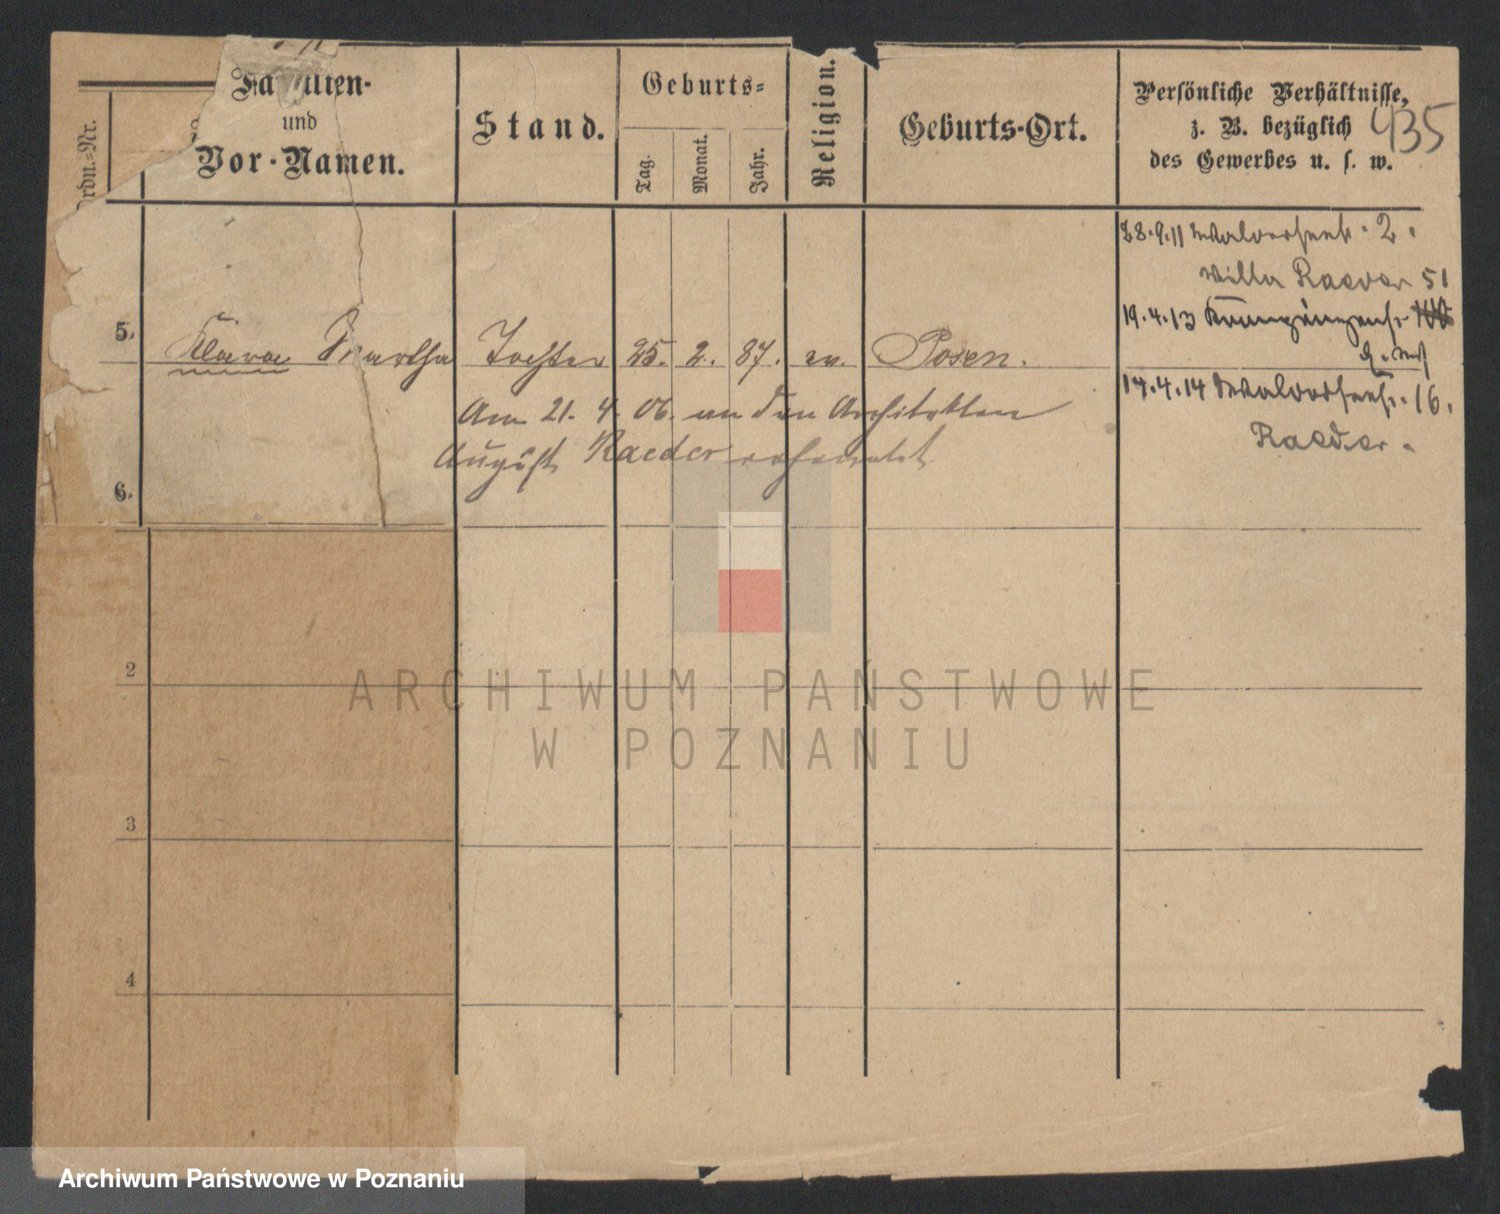 Ordn.-Nr.
Familien-
und
Vor-Namen.
Stand.
Geburts-
Tag.
Monat.
Jahr.
Religion.
Geburts-Ort.
Persönliche Verhältnisse,
z. B. bezüglich
des Gewerbes u. s. w.
435
28.9.11 Waldersestr. 2.
Villa Raeder 51
19.4.13
5.
Klara Martha Tochter 25. 2. 87. ev. Posen.
14.4.14 Walderseestr. 16.
Raeder.
Am 21. 4. 06. an den Architekten
August Raeder verheiratet
6.
2
3
4
ARCHIWUM PAŃSTWOWE
W POZNANIU
Archiwum Państwowe w Poznaniu